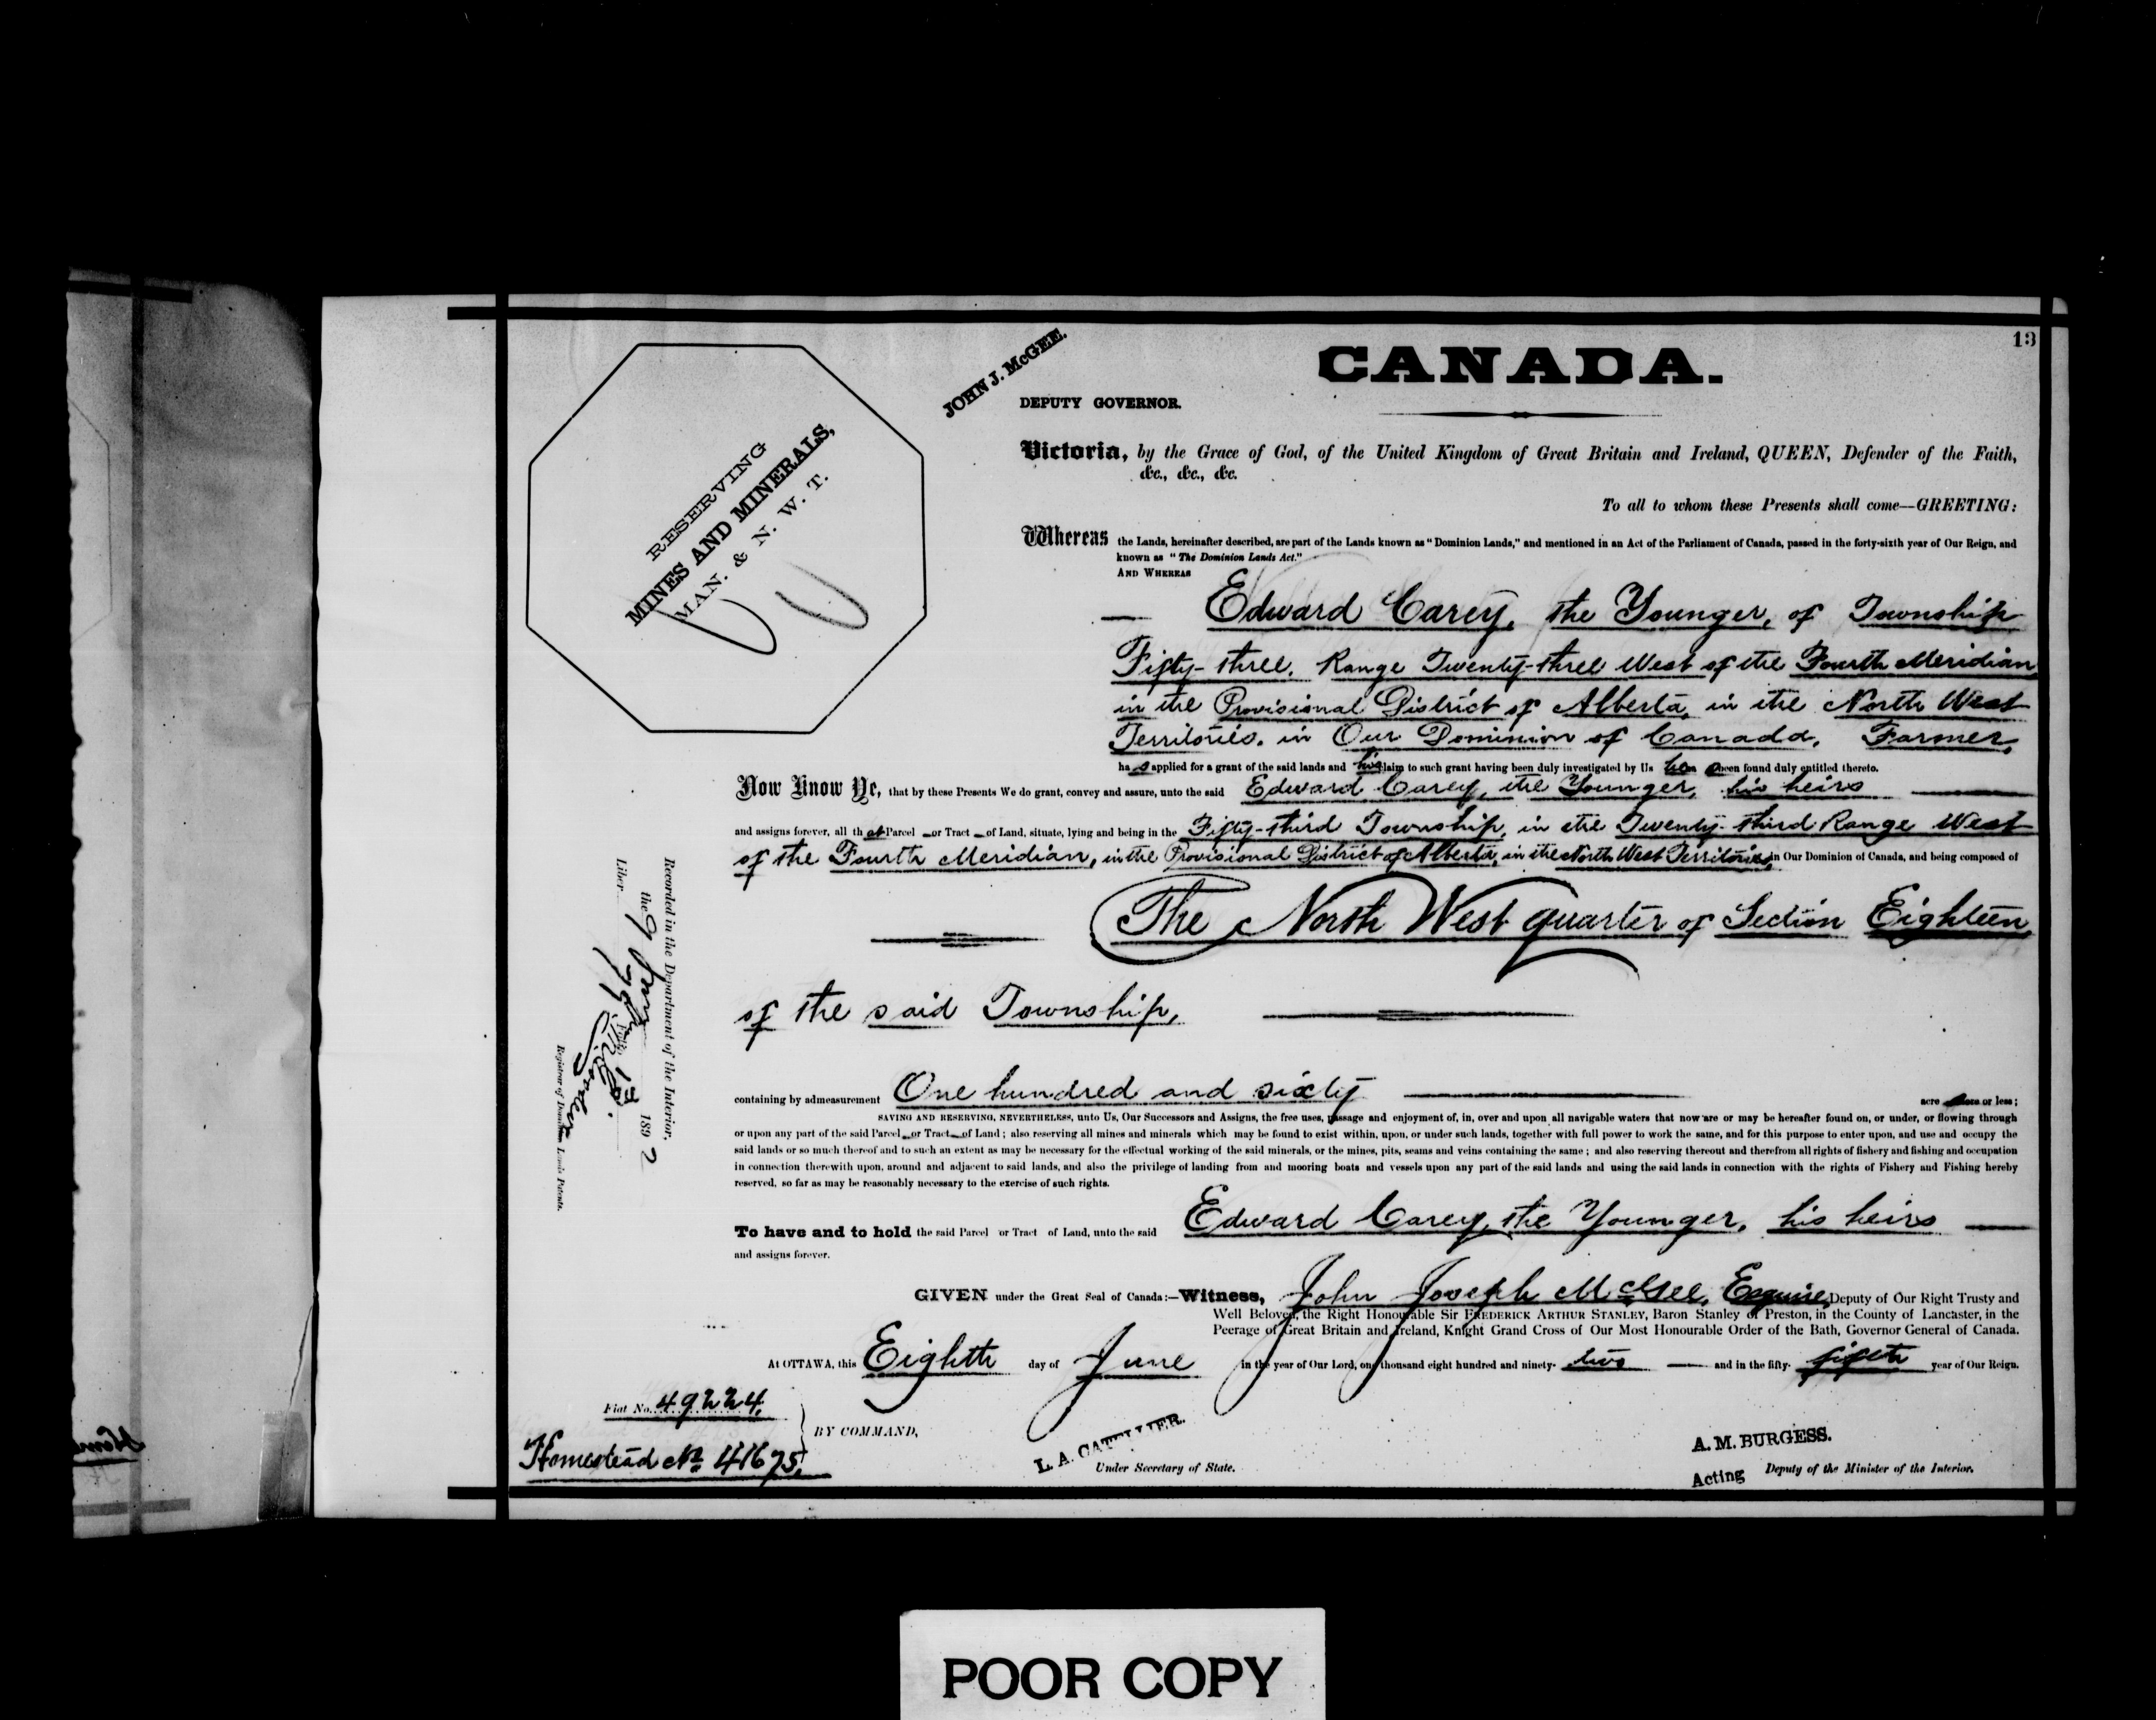 13
CANADA.
JOHN J. McGEE.
DEPUTY GOVERNOR.
RESERVING
MINES AND MINERALS,
MAN. & N. W. T.
Victoria, by the Grace of God, of the United Kingdom of Great Britain and Ireland, QUEEN, Defender of the Faith,
&c., &c., &c.
To all to whom these Presents shall come—GREETING:
Whereas the Lands, hereinafter described, are part of the Lands known as "Dominion Lands," and mentioned in an Act of the Parliament of Canada, passed in the forty-sixth year of Our Reign, and
known as "The Dominion Lands Act."
AND WHEREAS
Edward Carey, the Younger, of Township
Fifty-three, Range Twenty-three West of the Fourth Meridian,
in the Provisional District of Alberta, in the North West
Territories, in Our Dominion of Canada, Farmer,
has applied for a grant of the said lands and his claim to such grant having been duly investigated by Us he has been found duly entitled thereto.
Now Know Ye, that by these Presents We do grant, convey and assure, unto the said Edward Carey, the Younger, his heirs
and assigns forever, all that Parcel or Tract of Land, situate, lying and being in the Fifty-third Township, in the Twenty-third Range West
of the Fourth Meridian, in the Provisional District of Alberta, in the North West Territories, in Our Dominion of Canada, and being composed of
The North West quarter of Section Eighteen,
of the said Township,
containing by admeasurement One hundred and sixty acres more or less;
SAVING AND RESERVING, NEVERTHELESS, unto Us, Our Successors and Assigns, the free uses, passage and enjoyment of, in, over and upon all navigable waters that now are or may be hereafter found on, or under, or flowing through
or upon any part of the said Parcel or Tract of Land; also reserving all mines and minerals which may be found to exist within, upon, or under such lands, together with full power to work the same, and for this purpose to enter upon, and use and occupy the
said lands or so much thereof and to such an extent as may be necessary for the effectual working of the said minerals, or the mines, pits, seams and veins containing the same; and also reserving thereout and therefrom all rights of fishery and fishing and occupation
in connection therewith upon, around and adjacent to said lands, and also the privilege of landing from and mooring boats and vessels upon any part of the said lands and using the said lands in connection with the rights of Fishery and Fishing hereby
reserved, so far as may be reasonably necessary to the exercise of such rights.
To have and to hold the said Parcel or Tract of Land, unto the said Edward Carey, the Younger, his heirs
and assigns forever.
GIVEN under the Great Seal of Canada:—Witness, John Joseph McGee, Esquire, Deputy of Our Right Trusty and
Well Beloved, the Right Honourable Sir FREDERICK ARTHUR STANLEY, Baron Stanley of Preston, in the County of Lancaster, in the
Peerage of Great Britain and Ireland, Knight Grand Cross of Our Most Honourable Order of the Bath, Governor General of Canada.
At OTTAWA, this Eighth day of June in the year of Our Lord, one thousand eight hundred and ninety-two and in the fifty-fifth year of Our Reign.
Fiat No. 49224.
Homestead No 41675.
BY COMMAND,
L. A. CATELLIER.
Under Secretary of State.
A. M. BURGESS.
Acting Deputy of the Minister of the Interior.
Recorded in the Department of the Interior,
the 9 June 1892
Liber
Registrar of Dominion Lands Patents.
POOR COPY